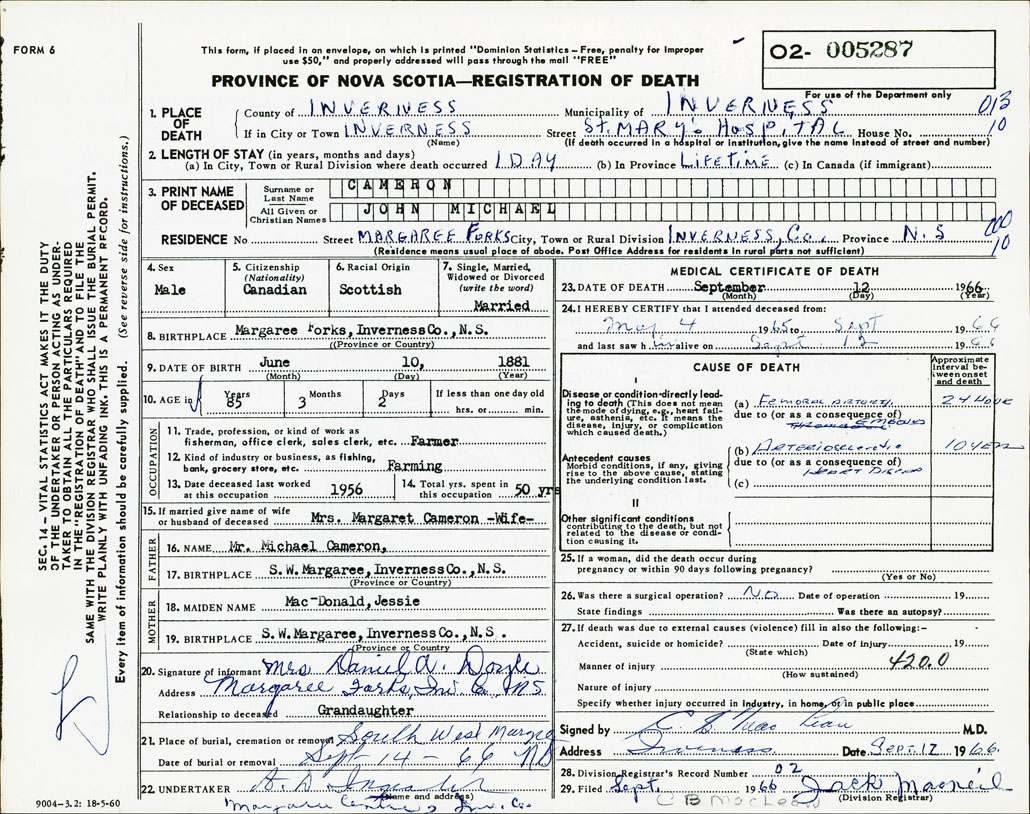 FORM 6
This form, if placed in an envelope, on which is printed "Dominion Statistics – Free, penalty for improper
use $50," and properly addressed will pass through the mail "FREE"
PROVINCE OF NOVA SCOTIA—REGISTRATION OF DEATH
02- 005287
For use of the Department only
SEC. 14 – VITAL STATISTICS ACT MAKES IT THE DUTY
OF THE UNDERTAKER OR PERSON ACTING AS UNDER-
TAKER TO OBTAIN ALL THE PARTICULARS REQUIRED
IN THE "REGISTRATION OF DEATH" AND TO FILE THE
SAME WITH THE DIVISION REGISTRAR WHO SHALL ISSUE THE BURIAL PERMIT.
WRITE PLAINLY WITH UNFADING INK. THIS IS A PERMANENT RECORD.
Every item of information should be carefully supplied. (See reverse side for instructions.)
1. PLACE OF DEATH
County of INVERNESS Municipality of INVERNESS 013
If in City or Town INVERNESS Street St. MARY's HOSPITAL House No. 10
(Name) (If death occurred in a hospital or institution, give the name instead of street and number)
2. LENGTH OF STAY (in years, months and days)
(a) In City, Town or Rural Division where death occurred 1 DAY (b) In Province LIFETIME (c) In Canada (if immigrant)
3. PRINT NAME OF DECEASED
Surname or Last Name CAMERON
All Given or Christian Names JOHN MICHAEL
RESIDENCE No Street MARGAREE FORKS City, Town or Rural Division INVERNESS, Co., Province N.S 000 10
(Residence means usual place of abode. Post Office Address for residents in rural parts not sufficient)
4. Sex Male
5. Citizenship (Nationality) Canadian
6. Racial Origin Scottish
7. Single, Married, Widowed or Divorced (write the word) Married
8. BIRTHPLACE Margaree Forks, Inverness Co., N.S.
(Province or Country)
9. DATE OF BIRTH June 10, 1881
(Month) (Day) (Year)
10. AGE in Years 85 Months 3 Days 2 If less than one day old
hrs. or min.
OCCUPATION
11. Trade, profession, or kind of work as
fisherman, office clerk, sales clerk, etc. Farmer
12. Kind of industry or business, as fishing,
bank, grocery store, etc. Farming
13. Date deceased last worked at this occupation 1956
14. Total yrs. spent in this occupation 50 yrs
15. If married give name of wife
or husband of deceased Mrs. Margaret Cameron -Wife-
FATHER
16. NAME Mr. Michael Cameron,
17. BIRTHPLACE S.W. Margaree, Inverness Co., N.S.
(Province or Country)
MOTHER
18. MAIDEN NAME Mac-Donald, Jessie
19. BIRTHPLACE S.W. Margaree, Inverness Co., N.S.
(Province or Country)
20. Signature of informant Mrs Daniel A. Doyle
Address Margaree Forks, Inv Co, N.S
Relationship to deceased Grandaughter
21. Place of burial, cremation or removal South West Margree
Date of burial or removal Sept 14 – 66 NS
22. UNDERTAKER
(Name and address)
Margaree Centre, Inv. Co.
9004-3.2: 18-5-60
MEDICAL CERTIFICATE OF DEATH
23. DATE OF DEATH September 12 1966
(Month) (Day) (Year)
24. I HEREBY CERTIFY that I attended deceased from:
May 4 1965 to Sept 1966
and last saw him alive on Sept. 12 1966
CAUSE OF DEATH
Approximate interval between onset and death
I
Disease or condition directly leading to death (This does not mean the mode of dying, e.g., heart failure, asthenia, etc. It means the disease, injury, or complication which caused death.)
(a) FEMORAL ARTERY. 24 HOUR
due to (or as a consequence of) EMBOLUS
Antecedent causes
Morbid conditions, if any, giving rise to the above cause, stating the underlying condition last.
(b) Arteriosclerotic 10 YEARS
due to (or as a consequence of) HEART DISEASE
(c)
II
Other significant conditions contributing to the death, but not related to the disease or condition causing it.
25. If a woman, did the death occur during
pregnancy or within 90 days following pregnancy?
(Yes or No)
26. Was there a surgical operation? NO Date of operation 19
State findings Was there an autopsy?
27. If death was due to external causes (violence) fill in also the following:–
Accident, suicide or homicide? Date of injury 19
(State which)
Manner of injury 420.0
(How sustained)
Nature of injury
Specify whether injury occurred in industry, in home, or in public place
Signed by M.D.
Address Inverness Date Sept. 12 1966.
28. Division Registrar's Record Number 02
29. Filed Sept. 1966 Jack Macneil
(Division Registrar)
C B MacLean